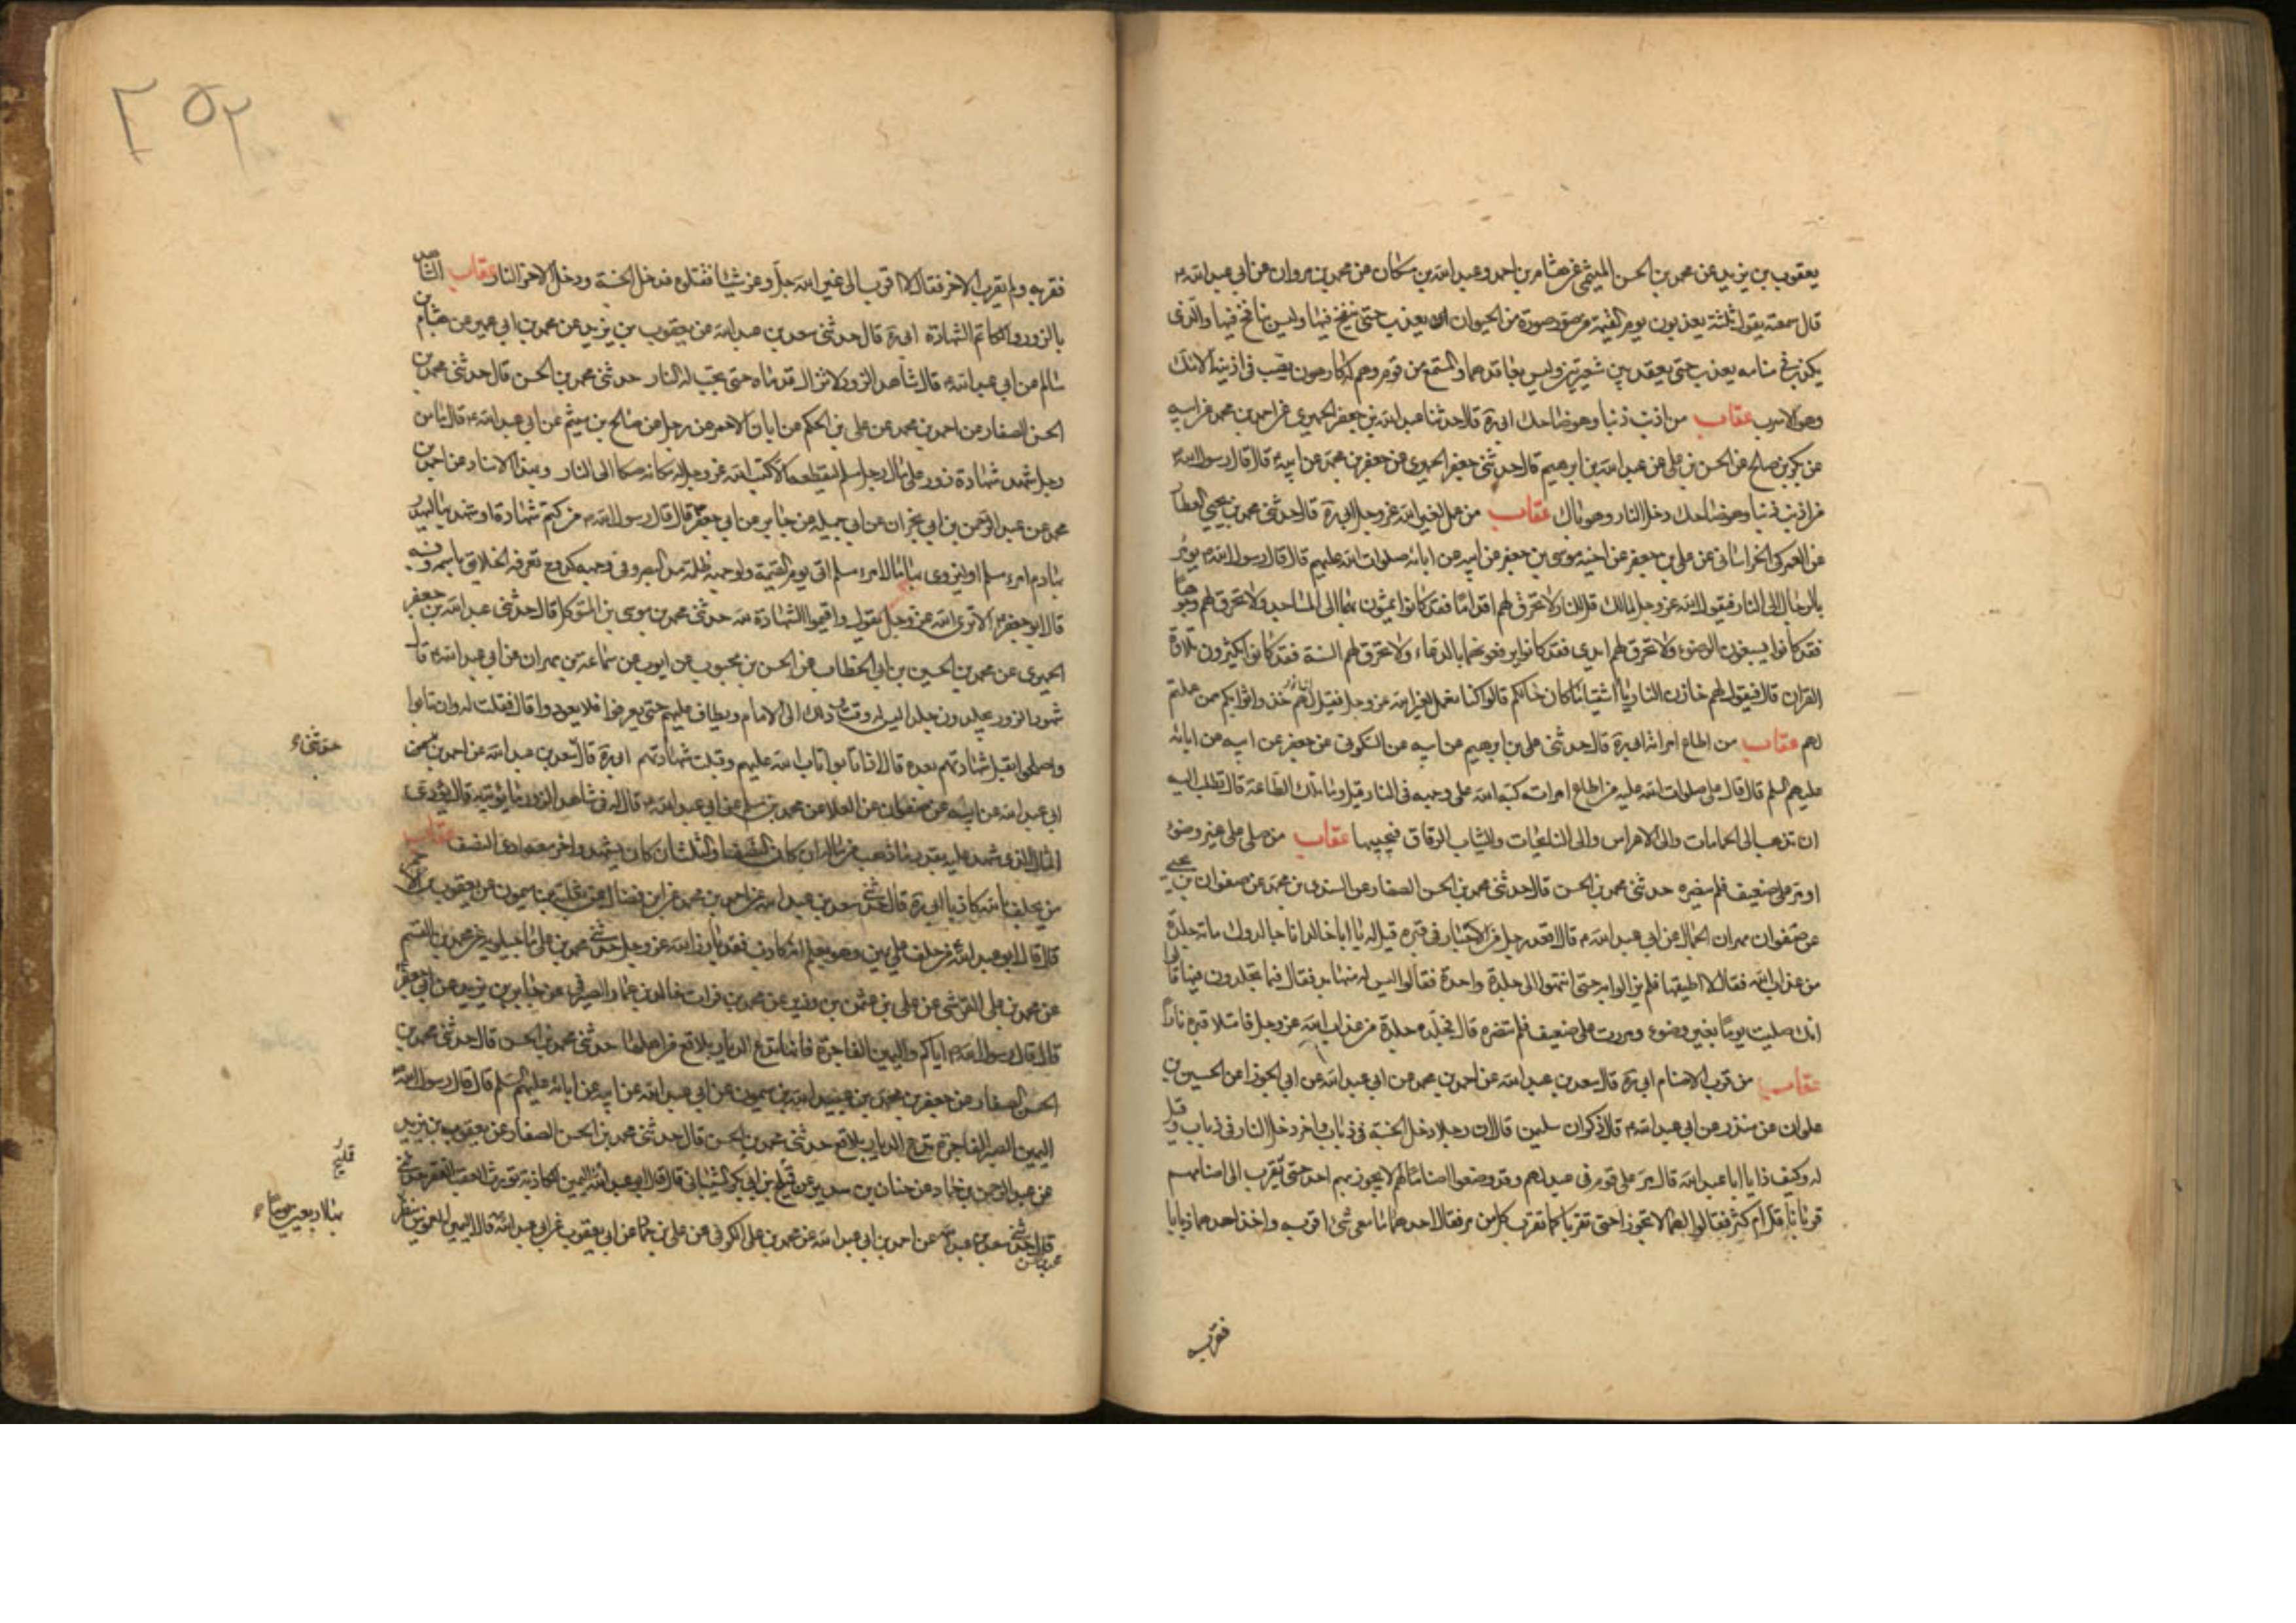 يعقوب بن يزيد عن محمد بن الحسن الميثمي عن هشام بن احمد وعبد الله بن مسكان عن محمد بن مروان عن ابي عبد الله ع
قال سمعته يقول ثلثة يعذبون يوم القيمة من صور صورة من الحيوان يعذب حتى ينفخ فيها وليس بنافخ فيها والذى
يكذب في منامه يعذب حتى يعقد بين شعيرتين وليس بعاقدهما والمستمع من قوم وهم له كارهون يصب في اذنيه الانك
وهو الاسرب عقاب من اذنب ذنبا وهو ضاحك ابى ره قال حدثنا عبد الله بن جعفر الحميرى عن احمد بن محمد عن ابيه
عن بكر بن صالح عن الحسن بن على عن عبد الله بن ابرهيم قال حدثنى جعفر الحميرى عن جعفر بن محمد عن ابيه ع قال قال رسول الله ص
من اذنب ذنبا وهو ضاحك دخل النار وهو باك عقاب من عمل لغير الله عز وجل ابى ره قال حدثنى محمد بن يحيى العطار
عن العمركى الخراسانى عن على بن جعفر عن اخيه موسى بن جعفر عن ابيه عن ابائه صلوات الله عليهم قال قال رسول الله ص يؤمر
بالرجال الى النار فيقول الله عز وجل لمالك قل للنار لا تحرق لهم اقداما فقد كانوا يمشون بها الى المساجد ولا تحرق لهم وجوها
فقد كانوا يسبغون الوضوء ولا تحرق لهم ايدى فقد كانوا يرفعونها بالدعاء ولا تحرق لهم السنة فقد كانوا يكثرون تلاوة
القران قال فيقول لهم خازن النار يا اشقياء ما كان حالكم قالوا كنا نعمل لغير الله عز وجل فقيل لهم خذوا ثوابكم ممن عملتم
لهم عقاب من اطاع امراته ابى ره قال حدثنى على بن ابرهيم عن ابيه عن السكونى عن جعفر عن ابيه عن ابائه
عليهم السلم قال قال على صلوات الله عليه من اطاع امراته كبه الله على وجهه فى النار قيل وما تلك الطاعة قال تطلب اليه
ان تذهب الى الحمامات والى الاعراس والى النياحات والثياب الرقاق فيجيبها عقاب من صلى على غير وضوء
او مر على ضعيف فلم ينصره حدثنى محمد بن الحسن قال حدثنى محمد بن الحسن الصفار عن السندى بن محمد عن صفوان بن يحيى
عن صفوان بن مهران الجمال عن ابى عبد الله ع قال اقعد رجل من الاخيار فى قبره قيل له انا جالدوك مائة جلدة
من عذاب الله فقال لا اطيقها فلم يزالوا به حتى انتهوا الى جلدة واحدة فقالوا ليس منها بد فقال فيما تجلدون فيها قالوا
انك صليت يوما بغير وضوء ومررت على ضعيف فلم تنصره قال فجلد جلدة من عذاب الله عز وجل فامتلا قبره نارا
عقاب من قرب الاصنام ابى ره قال سعد بن عبد الله عن احمد بن محمد عن ابى عبد الله عن ابى الجوزا عن الحسين بن
علوان عن منذر عن ابى عبد الله ع قال ذكر ان سلمن قال ان رجلا دخل الجنة فى ذباب واخر دخل النار فى ذباب وقيل
له وكيف ذا يا ابا عبد الله قال مر على قوم فى عيد لهم وقد وضعوا اصناما لهم لا يجوز بهم احد حتى يقرب الى اصنامهم
قربانا قل ام كثر فقالوا لهما لا تجوزا حتى تقربا كما تقرب كل من مر فقال احدهما ما معى شئ اقربه واخذ احدهما ذبابا
فقربه
٢٥٢
فقربه ولم يقرب الاخر فقال لا اقرب الى غير الله جل وعز شيئا فقتلوه فدخل الجنة ودخل الاخر النار عقاب الشاهد
بالزور والكاتم الشهادة ابى ره قال حدثنى سعد بن عبد الله عن يعقوب بن يزيد عن محمد بن ابى عمير عن هشام بن
سالم عن ابى عبد الله ع قال شاهد الزور لا تزال قدماه حتى تجب له النار حدثنى محمد بن الحسن قال حدثنى محمد بن
الحسن الصفار عن احمد بن محمد عن على بن الحكم عن ابان الاحمر عن رجل عن صالح بن ميثم عن ابى عبد الله ع قال ما من
رجل شهد شهادة زور على مال رجل مسلم ليقطعه الا كتب الله عز وجل له مكانه صكا الى النار وبهذا الاسناد عن احمد بن
محمد عن عبد الرحمن بن ابى نجران عن ابى جميلة عن جابر عن ابى جعفر قال قال رسول الله ص من كتم شهادة او شهد بها ليهدر
بها دم امرء مسلم او ليزوى بها مال امرء مسلم اتى يوم القيمة ولوجهه ظلمة مد البصر وفى وجهه كدوح تعرفه الخلايق باسمه ونسبه
قال ابو جعفر ع الا ترى الله عز وجل يقول واقيموا الشهادة لله حدثنى محمد بن موسى بن المتوكل قال حدثنى عبد الله بن جعفر
الحميرى عن محمد بن الحسين بن ابى الخطاب عن الحسن بن محبوب عن ايوب عن سماعة بن مهران عن ابى عبد الله ع قال
شهود الزور يجلدون جلدا ليس له وقت ذلك الى الامام ويطاف عليهم حتى يعرفوا فلا يعودوا قال فقلت له وان تابوا
واصلحوا تقبل شهادتهم بعده قال اذا تابوا تاب الله عليهم وقبلت شهادتهم ابى ره قال سعد بن عبد الله عن احمد بن
ابى عبد الله عن ابيه عن صفوان عن العلا عن محمد بن مسلم عن ابى عبد الله ع قال له فى شاهد الزور ما توبته قال يؤدى
المال الذى شهد عليه بقدر ما ذهب من ماله ان كان النصف او الثلث ان كان شهد واخر معه ادى النصف عقاب
من يحلف بالله كاذبا ابى ره قال حدثنى سعد بن عبد الله عن احمد بن محمد عن ابن فضال عن ثعلبة بن ميمون عن يعقوب الاحمر
قال قال ابو عبد الله ع من حلف على يمين وهو يعلم انه كاذب فقد بارز الله عز وجل حدثنى محمد بن على ماجيلويه عن محمد بن القسم
عن محمد بن على القرشى عن على بن عثمن بن رزين عن محمد بن فرات خال ابى عمار الصيرفى عن جابر بن يزيد عن ابى جعفر
قال قال رسول الله ص اياكم واليمين الفاجرة فانها تدع الديار بلاقع من اهلها حدثنى محمد بن الحسن قال حدثنى محمد بن
الحسن الصفار عن جعفر بن محمد بن عبيد الله بن ميمون عن ابى عبد الله عن ابيه عن ابائه عليهم السلم قال قال رسول الله ص
اليمين الصبر الفاجرة تدع الديار بلاقع حدثنى محمد بن الحسن قال حدثنى محمد بن الحسن الصفار عن يعقوب بن يزيد
عن عبد الرحمن بن حماد عن حنان بن سدير عن فليح بن ابى بكر الشيبانى قال قال ابو عبد الله اليمين الكاذبة تورث العقب الفقر حدثنى
قال حدثنى سعد بن عبد الله عن احمد بن ابى عبد الله عن محمد بن على الكوفى عن على بن حماد عن ابى يعقوب عن ابى عبد الله قال اليمين الغموس ينتظر
محمد بن الحسن
حدثنى
فليح
بها اربعين